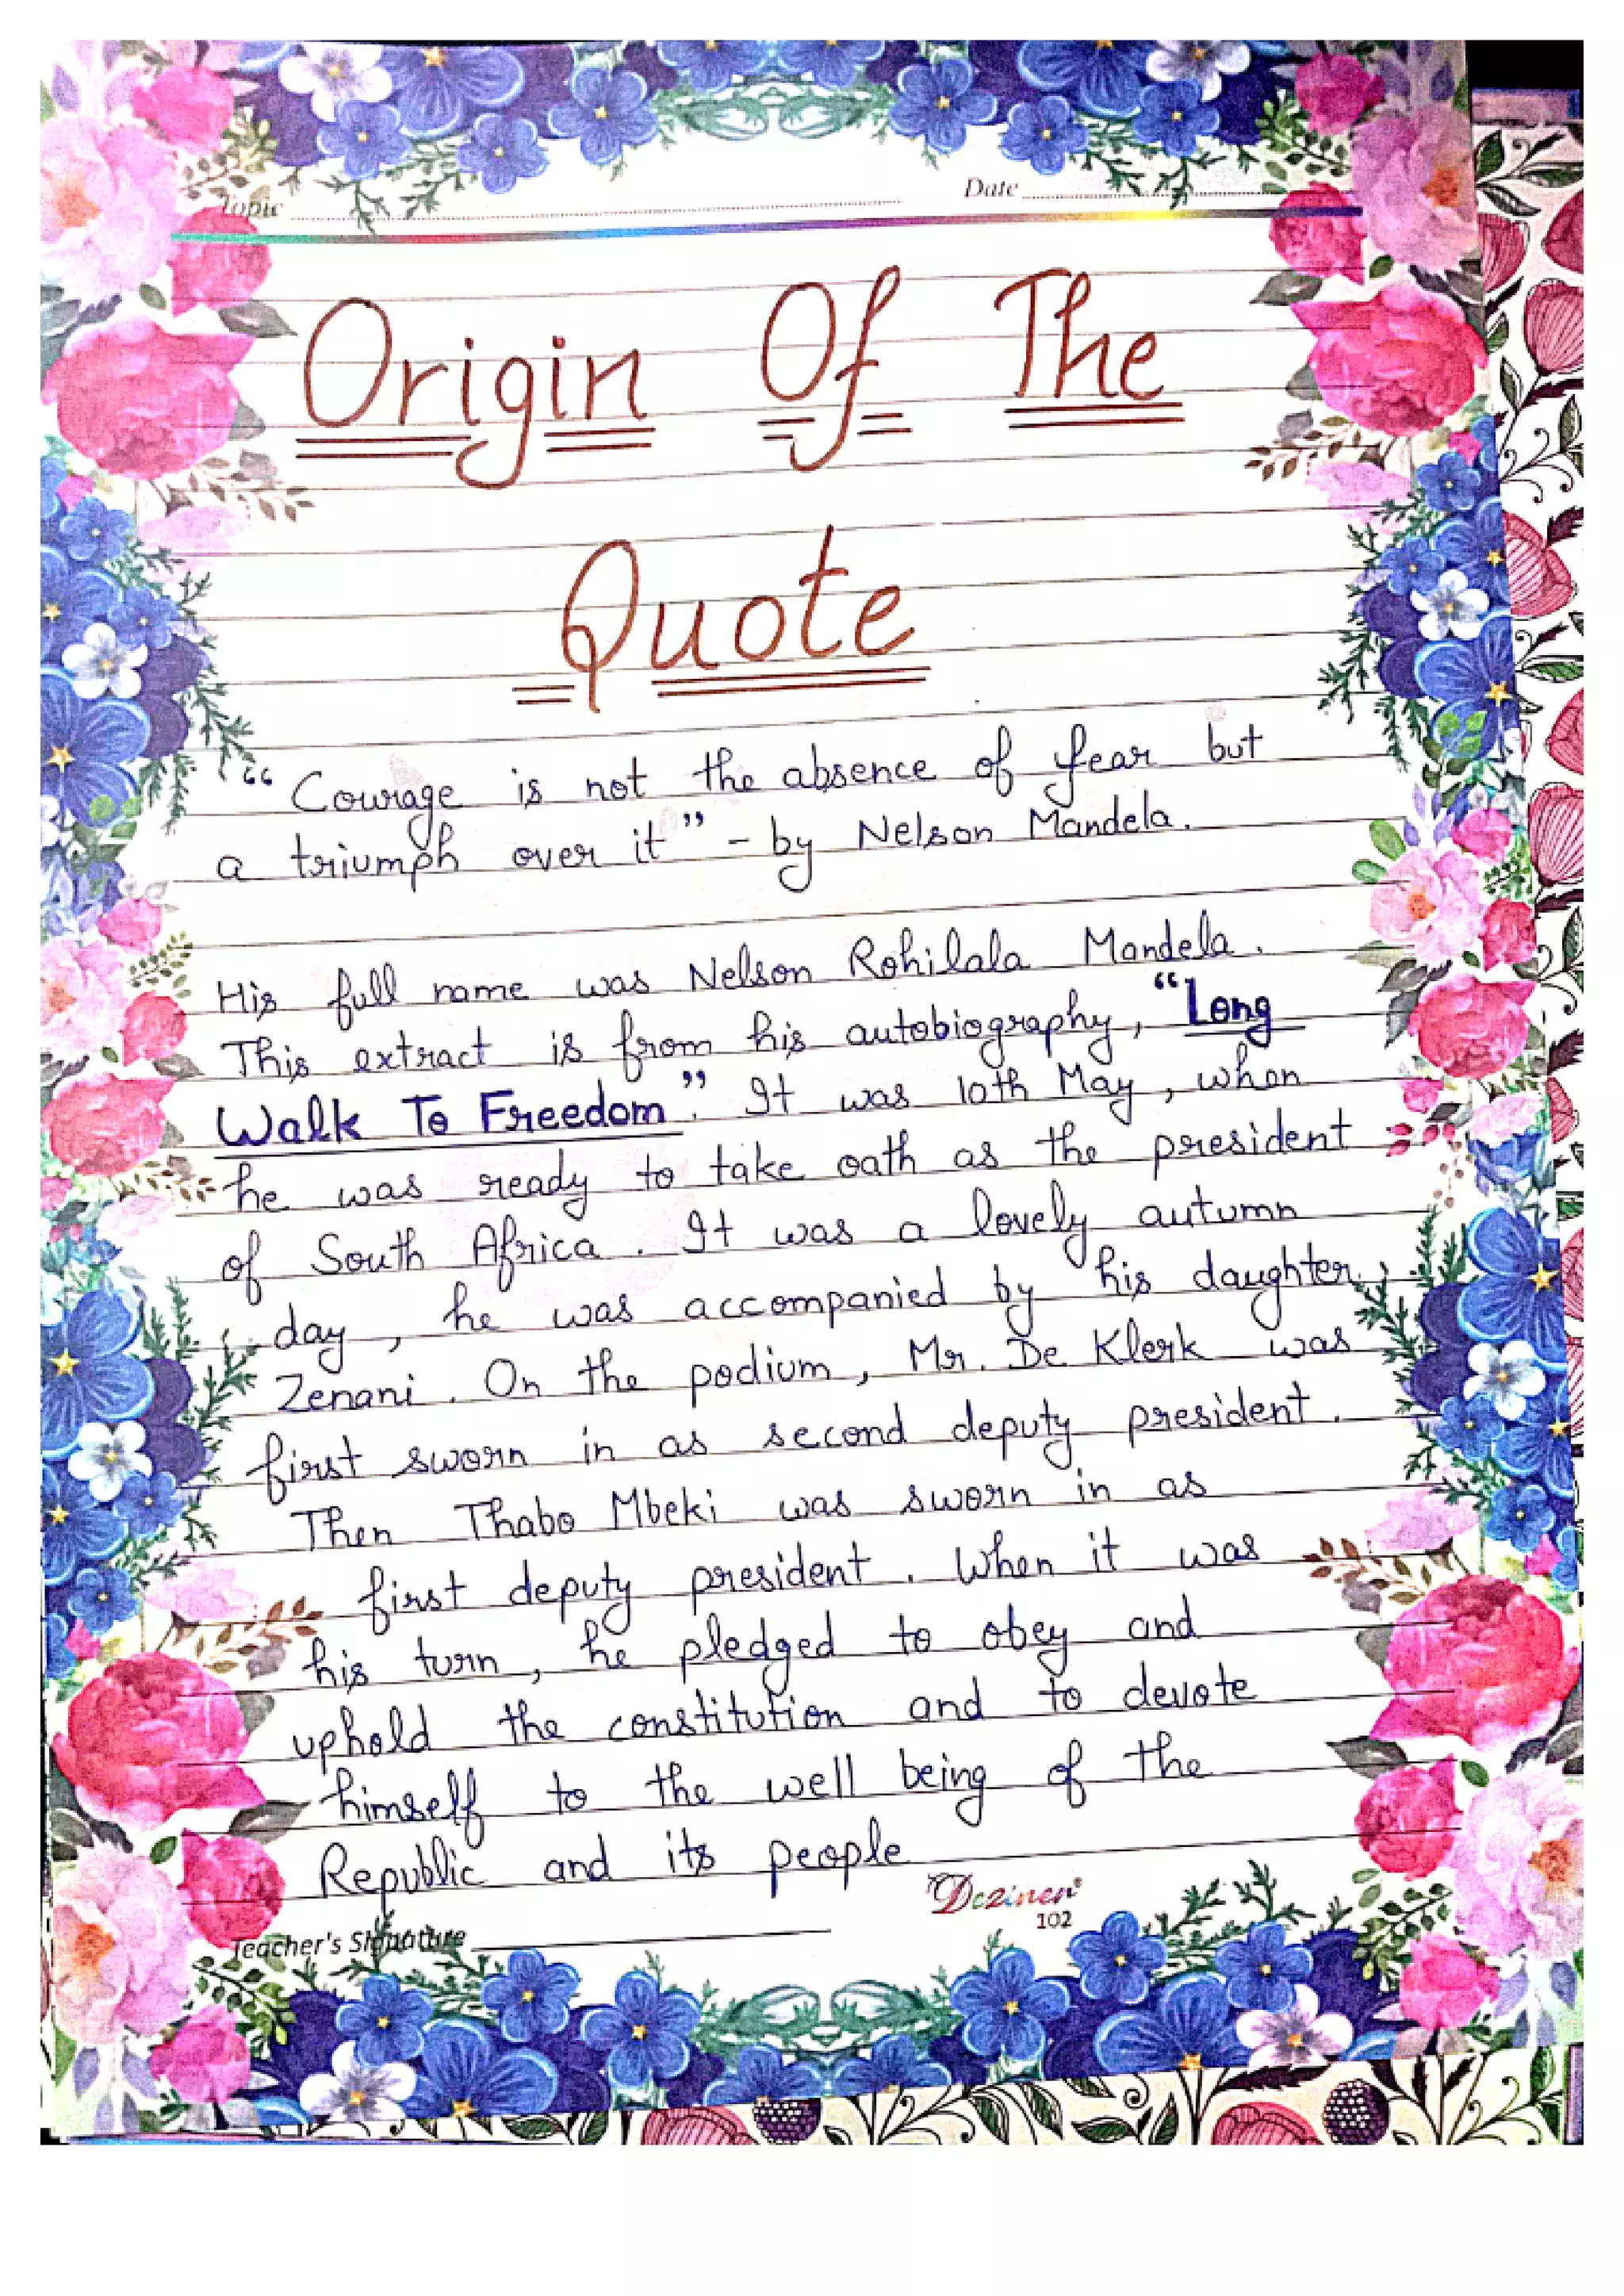 Topic
Date
Origin Of The
Quote
“ Courage is not the absence of fear but
a triumph over it ” - by Nelson Mandela.
His full name was Nelson Rohilala Mandela.
This extract is from his autobiography, “Long
Walk To Freedom”. It was 10th May, when
he was ready to take oath as the president
of South Africa. It was a lovely autumn
day, he was accompanied by his daughter,
Zenani. On the podium, Mr. De Klerk was
first sworn in as second deputy president.
Then Thabo Mbeki was sworn in as
first deputy president. When it was
his turn, he pledged to obey and
uphold the constitution and to devote
himself to the well being of the
Republic and its people
Dezinen®
102
Teacher's Signature